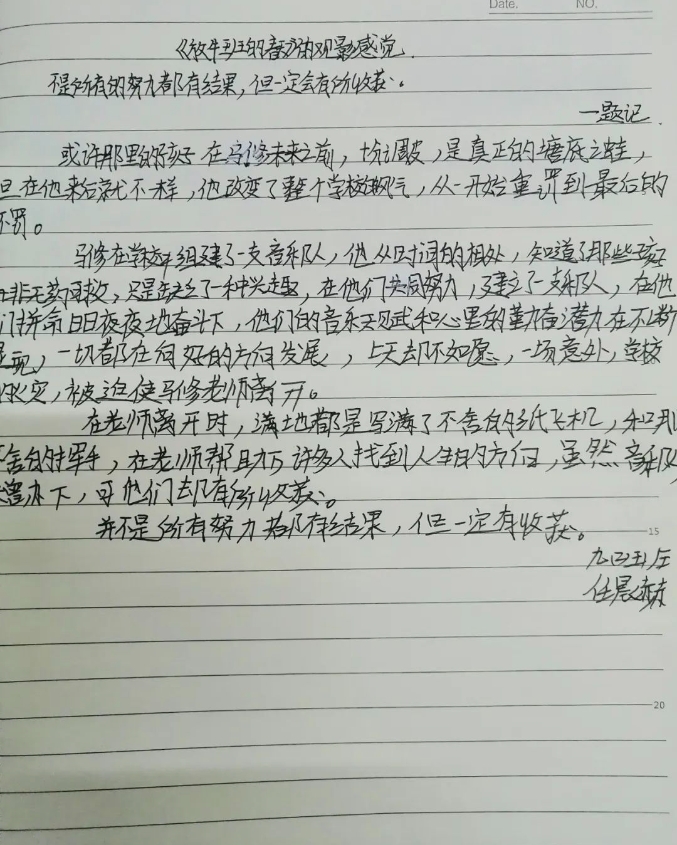 Date. NO.
《放牛班的春天》的观影感觉.
不是所有的努力都有结果,但一定会有所收获。
一题记.
或许那里的孩子在马修未来之前,十分调皮,是真正的塘底之蛙,
但在他来后就不一样,他改变了整个学校的风气,从一开始重罚到最后的
不罚。
马修在学校组建了一支音乐队,他从时间的相处,知道了那些孩子
并非无药可救,只是缺乏了一种兴趣,在他们共同努力,建立了一支乐队,在他
们拼命日日夜夜地奋斗下,他们的音乐天赋和心里的勤奋潜力在不断
显现,一切都在向好的方向发展,上天却不如愿,一场意外,学校
的火灾,被迫使马修老师离开。
在老师离开时,满地都是写满了不舍的纸飞机,和那
不舍的挥手,在老师帮助下许多人找到人生的方向,虽然音乐队
下,可他们却有所收获。
并不是所有努力都有结果,但一定有收获。
15
任晨赫
20